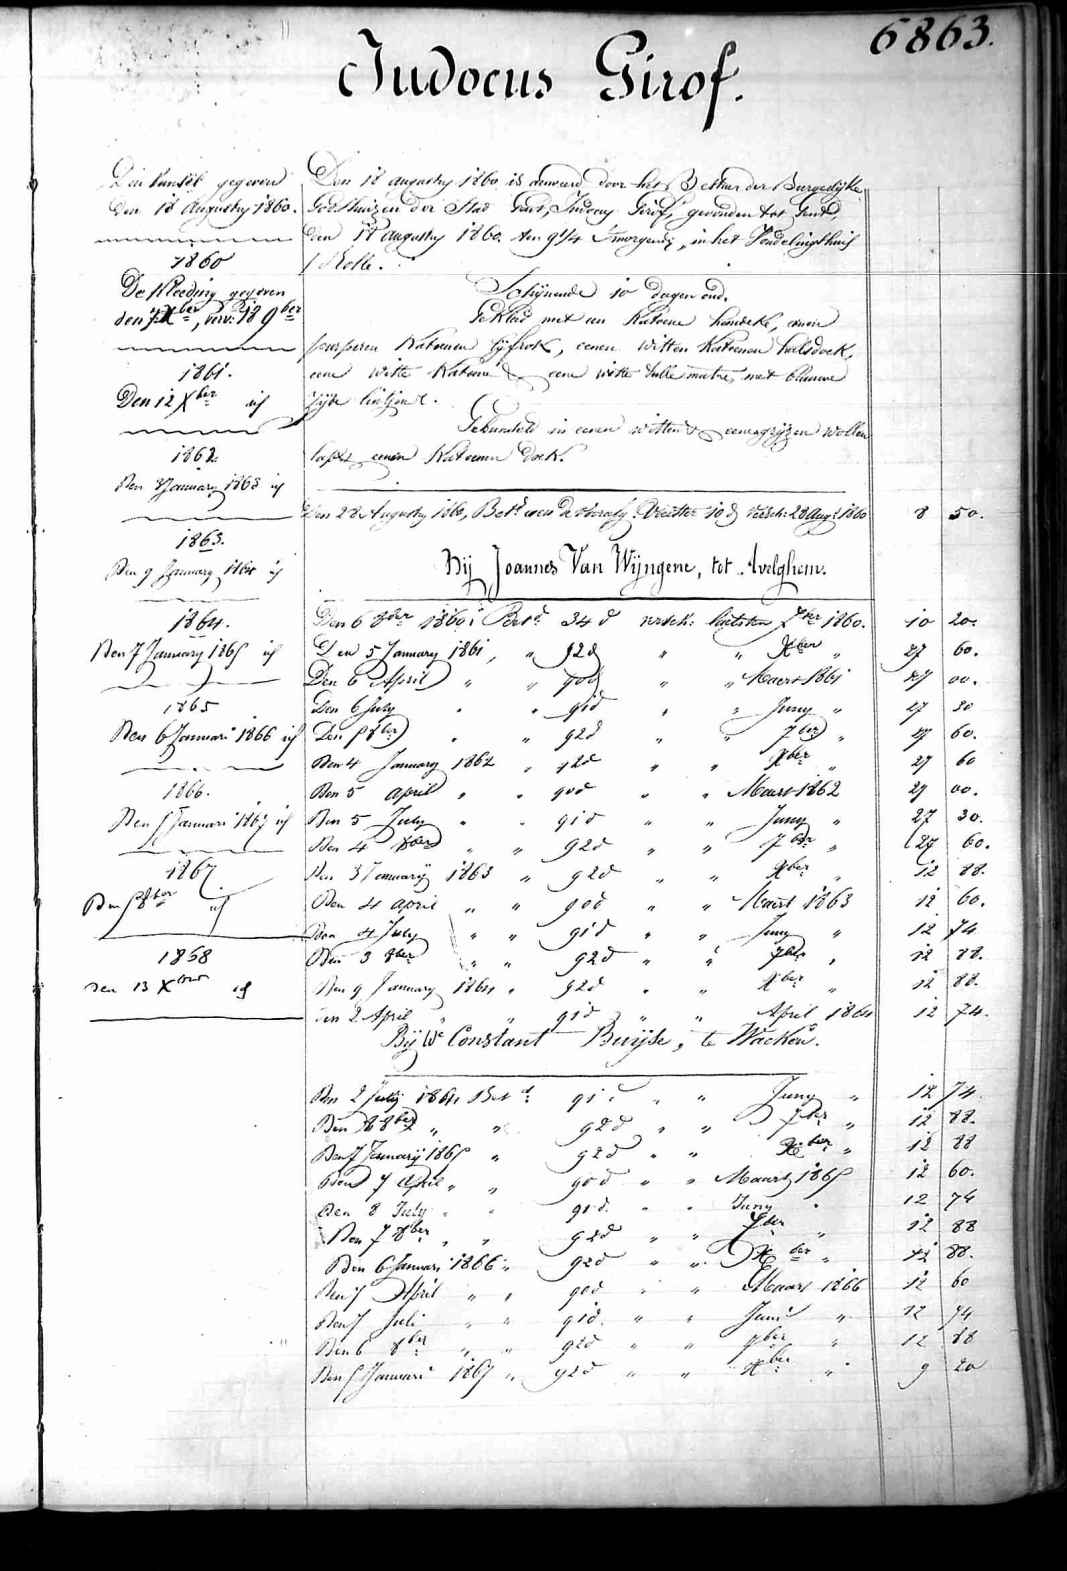 6863.
Judocus Girof.
gegeven
den 18 Augusty 1860.
1860
De Kleeding gegeven
1861.
Den 12 Xber id
1862.
Den January 1863 id
1863.
Den 9 January 1864 id
1864.
Den 7 January 1865 id
1865
Den 6 Januari 1866 id
1866.
Den 5 Januari 1867 id
1867
Den 5 8ber id
1868
Den 13 Xber id
Den 18 augusty 1860 is aenveerd door het Bestuur der Burgerlijke
Godshuizen der Stad Gent, Judocus Girof, gevonden tot Gent,
den 18 augusty 1860. ten 9 1/4 smorgens, in het Vondelingshuis
Schijnende 10 dagen oud.
Gekleed met een Katoene hemdeke, eenen
Katoenen lijfrok, eenen witten Katoenen halsdoek,
eene witte Katoene eene witte tulle muts, met blauwe
zijde lintjens.
Gebundeld in eenen witten & eenen grijzen wollen
eenen Katoenen doek.
Den 28 Augusty 1860, Bet. 10 d versch: 28 Aug: 1860 8 50.
Bij Joannes Van Wijngene, tot Avelghem.
Den 6 8ber 1860 Bet. 34 d versch: 7ber 1860. 10 20.
Den 5 January 1861, " 92d " " Xber " 27 60.
Den 6 April " " 90d " " Maert 1861 27 00.
Den 6 July " " 91d " " Juny " 27 30
Den 5 8ber " " 92d " " 7ber " 27 60.
Den 4 January 1862 " 92d " " Xber " 27 60
Den 5 april " " 90d " " Maert 1862 27 00.
Den 5 July " " 91d " " Juny " 27 30.
Den 4 8ber " " 92d " " 7ber " 27 60.
Den 3 January 1863 " 92d " " Xber " 12 88.
Den 4 april " " 90d " " Maert 1863 12 60.
Den 4 July " " 91d " " Juny " 12 74
Den 3 8ber " " 92d " " 7ber " 12 88.
Den 9 January 1864 " 92d " " Xber " 12 88.
Den 2 April " " 91d " " April 1864 12 74.
Bij We Constant Buijse, te Wacken.
Den 2 July 1864 Bet. 91d " " Juny " 12 74
Den 8 8ber " " 92d " " 7ber " 12 88.
Den 7 January 1865 " 92d " " Xber " 12 88
Den 7 April " " 90d " " Maart 1865 12 60.
Den 8 July " " 91d " " Juny " 12 74
Den 7 8ber " " 92d " " 7ber " 12 88
Den 6 Januari 1866 " 92d " " Xber " 12 88.
Den 7 April " " 90d " " Maart 1866 12 60
Den 7 Juli " " 91d " " Juni " 12 74
Den 6 8ber " " 92d " " 7ber " 12 88
Den 5 Januari 1867 " 92d " " Xber " 9 20